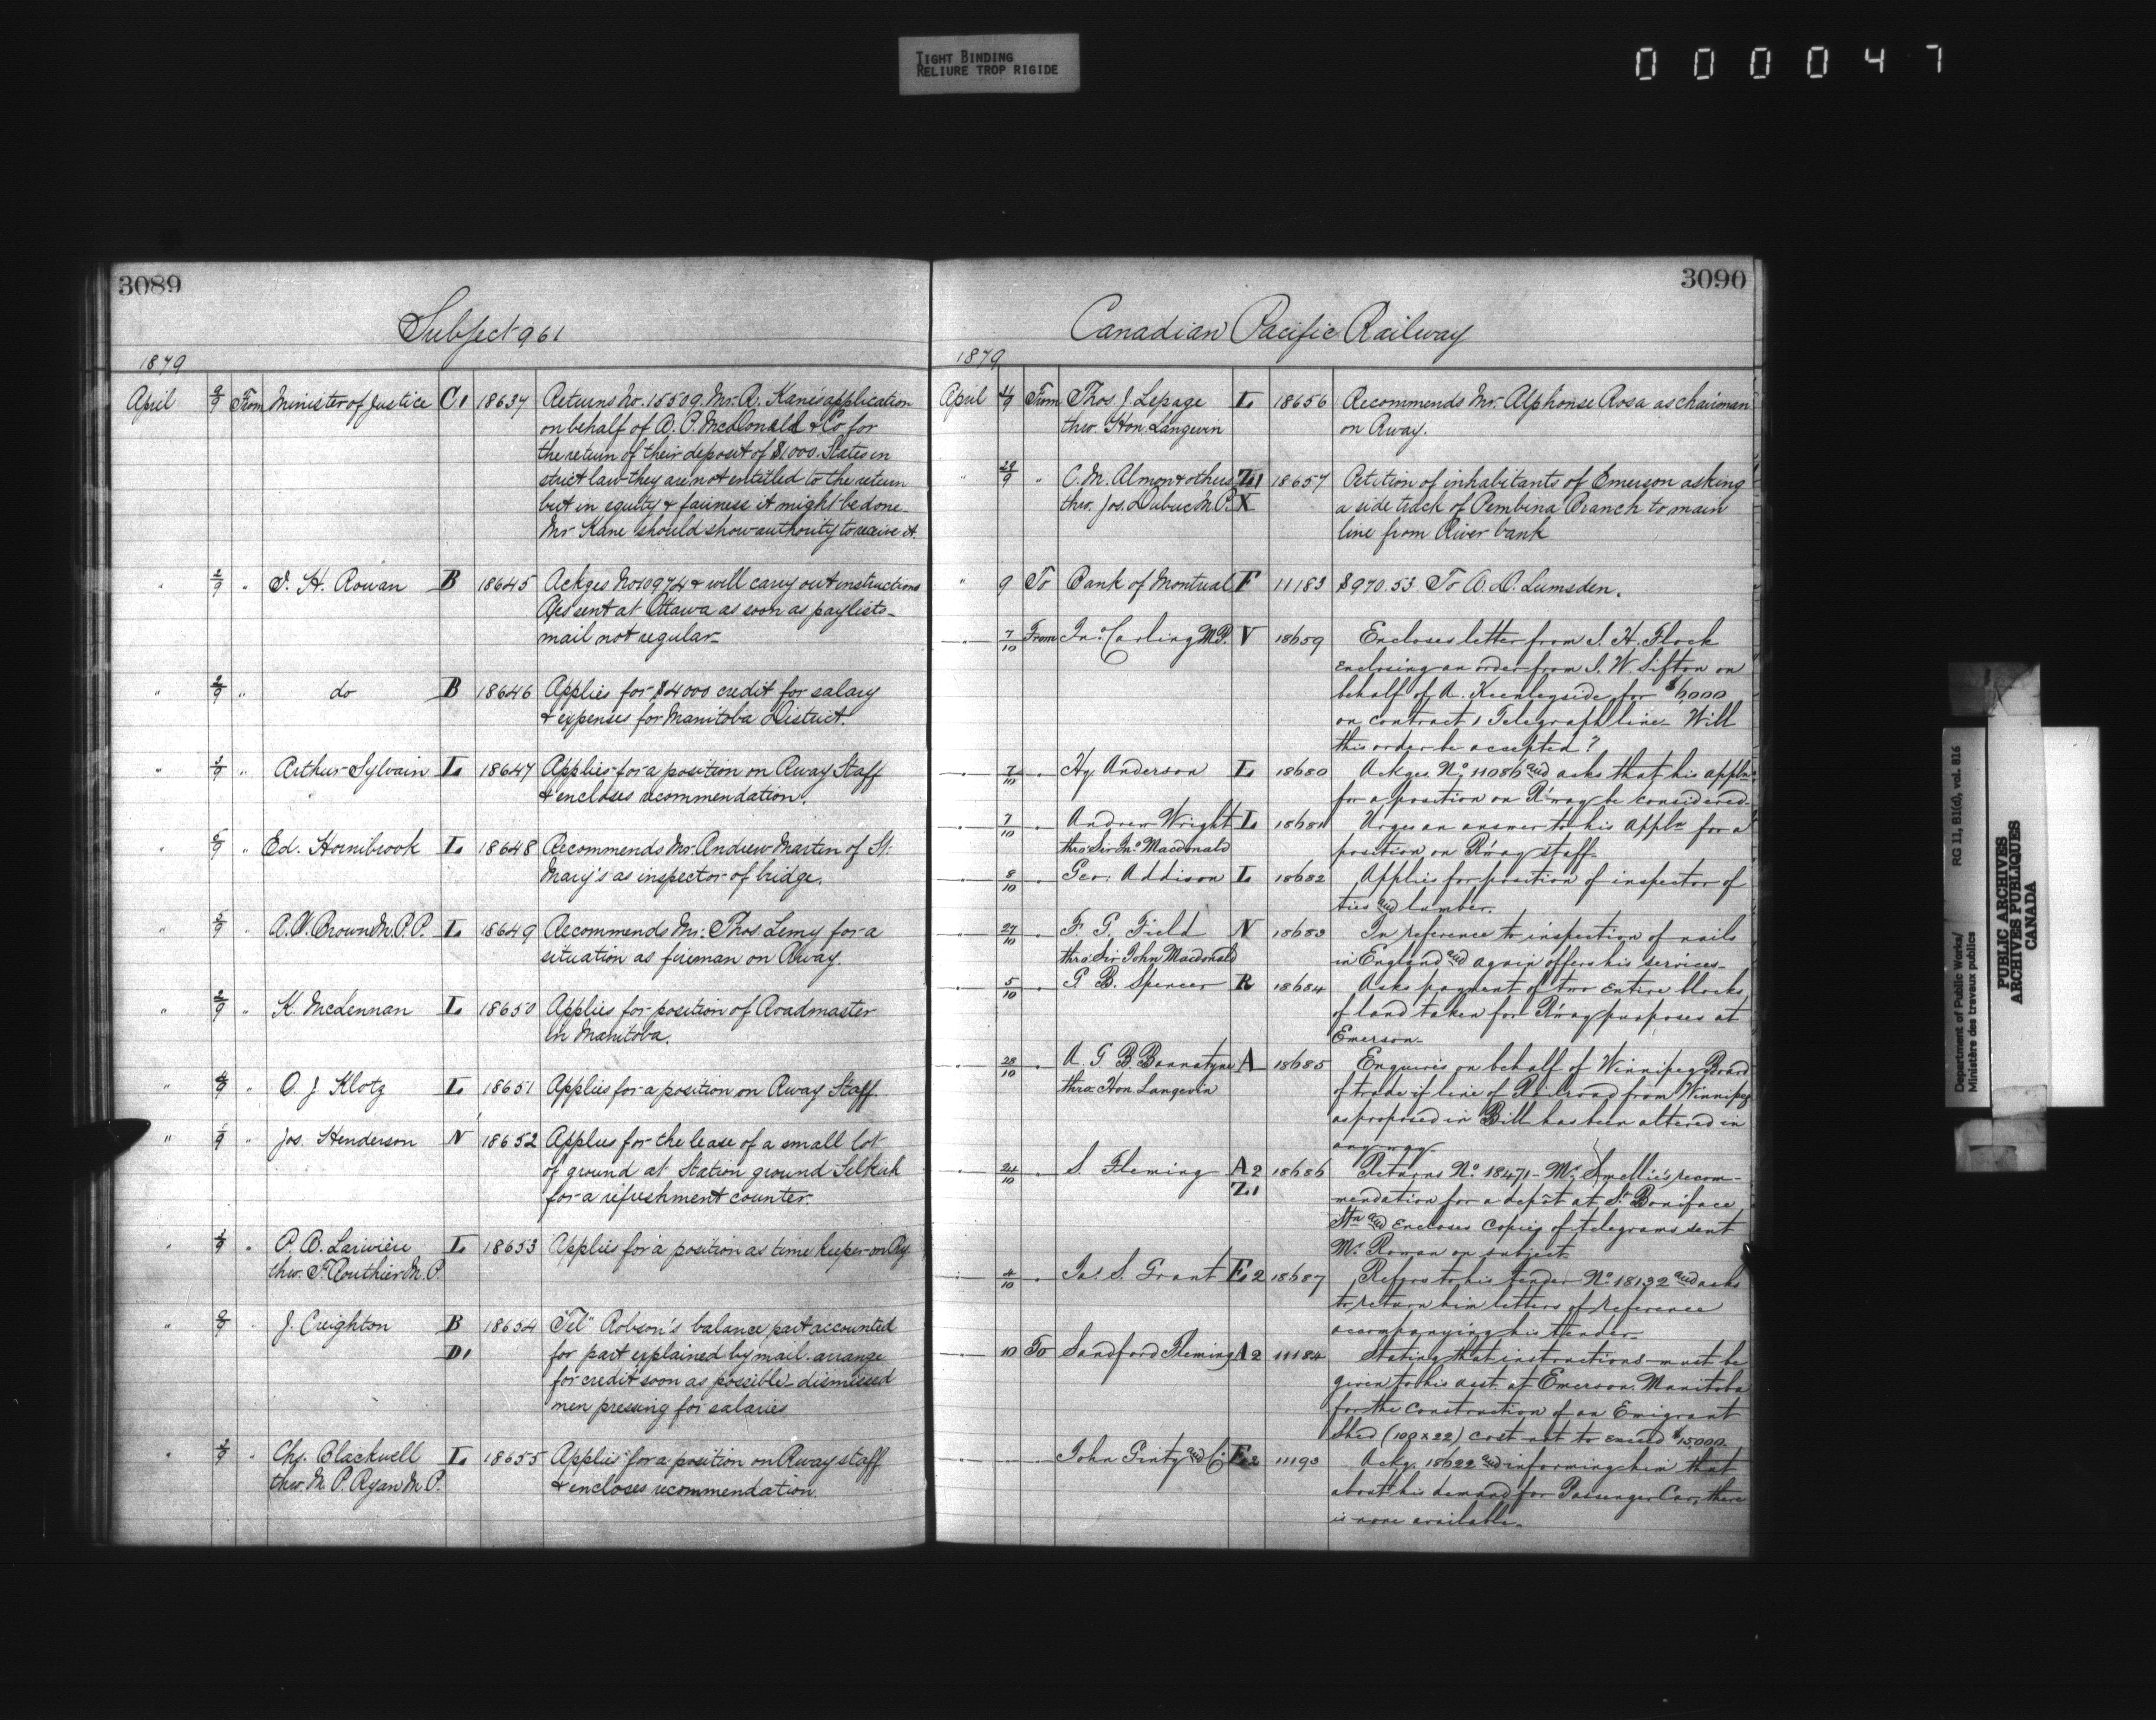 TIGHT BINDING
RELIURE TROP RIGIDE
000047
3089
Subject 961
1879
April 9 From Minister of Justice C1 18637 Returns No. 18509. Mr. R. Kane's application
on behalf of A. P. McDonald & Co for
the return of their deposit of $1000. States in
strict law they are not entitled to the return
but in equity & fairness it might be done
Mr Kane should show authority to receive it.
" 2/9 " J. H. Rowan B 18645 Ackges No 10974 & will carry out instructions
sent at Ottawa as soon as paylists -
mail not regular -
" 2/9 " do B 18646 Applies for $4000 credit for salary
& expenses for Manitoba District.
" 3/9 " Arthur Sylvain L 18647 Applies for a position on Rway Staff
& encloses recommendation.
" 5/9 " Ed. Hornibrook L 18648 Recommends Mr. Andrew Martin of St.
Mary's as inspector of bridge.
" 5/9 " A. W. Brown M.P.P. L 18649 Recommends Mr. Thos. Lemy for a
situation as fireman on Rway.
" 2/9 " K. McLennan L 18650 Applies for position of Roadmaster
in Manitoba.
" 4/9 " O. J. Klotz L 18651 Applies for a position on Rway Staff.
" 1/9 " Jos. Henderson N 18652 Applies for the lease of a small lot
of ground at Station ground Selkirk
for a refreshment counter.
" " P. B. Larivière L 18653 Applies for a position as time keeper on Ry
thro. F. Routhier M.P.
" " J. Creighton B 18654 "Tel" Robson's balance part accounted
D1 for part explained by mail. arrange
for credit soon as possible - dismissed
men pressing for salaries
" " Chs. Blackwell L 18655 Applies for a position on Rway staff
thro. M. P. Ryan M.P. & encloses recommendation.
3090
Canadian Pacific Railway
1879
April From Thos. J. Lepage L 18656 Recommends Mr. Alphonse Rosa as chairman
thro. Hon. Langevin on Rway.
" " C. M. Almon & others Z1 18657 Petition of inhabitants of Emerson asking
thro. Jos. Dubuc M.P. X a side track of Pembina Branch to main
line from River bank
" 9 To Bank of Montreal F 11183 $970.53 To A. D. Lumsden.
7/10 From Jno. Carling M.P. V 18659 Encloses letter from J. H. Flock
enclosing an order from J. W. Sifton on
behalf of A. Keenleyside for $6000
on contract 1 Telegraph line - Will
this order be accepted ?
7/10 " Hy. Anderson L 18680 Ackges No. 11086 and asks that his appln
for a position on R'way be considered.
7/10 " Andrew Wright L 18681 Urges an answer to his appln for a
thro' Sir Jno. Macdonald position on R'way staff.
8/10 " Geo. Addison L 18682 Applies for position of inspector of
ties and lumber.
27/10 " F. G. Field N 18683 In reference to inspection of rails
thro: Sir John Macdonald in England and again offers his services -
5/10 " G. B. Spencer R 18684 Asks payment of two entire blocks
of land taken for R'way purposes at
Emerson -
28/10 " A. G. B. Bannatyne A 18685 Enquires on behalf of Winnipeg Board
thro: Hon. Langevin of trade if line of Railroad from Winnipeg
as proposed in Bill has been altered in
any way -
24/10 " S. Fleming A2 18686 Returns No. 18471 - Mr. Smellie's recom-
Z1 mendation for a depôt at St. Boniface
Stn and encloses copies of telegrams sent
Mr. Rowan on subject.
4/10 " Ja. S. Grant E2 18687 Refers to his tender No. 18132 and asks
to return him letters of reference
accompanying his tender -
10 To Sandford Fleming A2 11184 Stating that instructions must be
given to his asst. at Emerson, Manitoba
for the construction of an Emigrant
Shed (100 x 22) cost not to exceed $15000.
John Ginty and Co E2 11193 Ackg. 18622 and informing him that
about his demand for Passenger Car, there
is none available -
Department of Public Works/ RG 11, B1(d), vol. 816
Ministère des travaux publics
PUBLIC ARCHIVES
ARCHIVES PUBLIQUES
CANADA